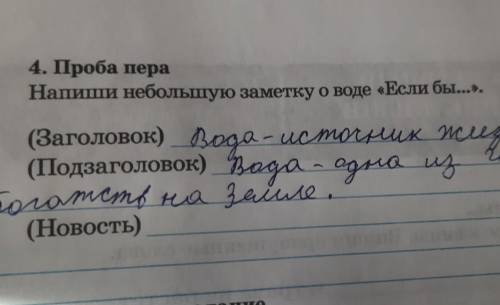 4. Проба пера
Напиши небольшую заметку о воде «Если бы...».
(Заголовок) Вода - источник
(Подзаголовок) Вода - одна из
богатств на Земле.
(Новость)